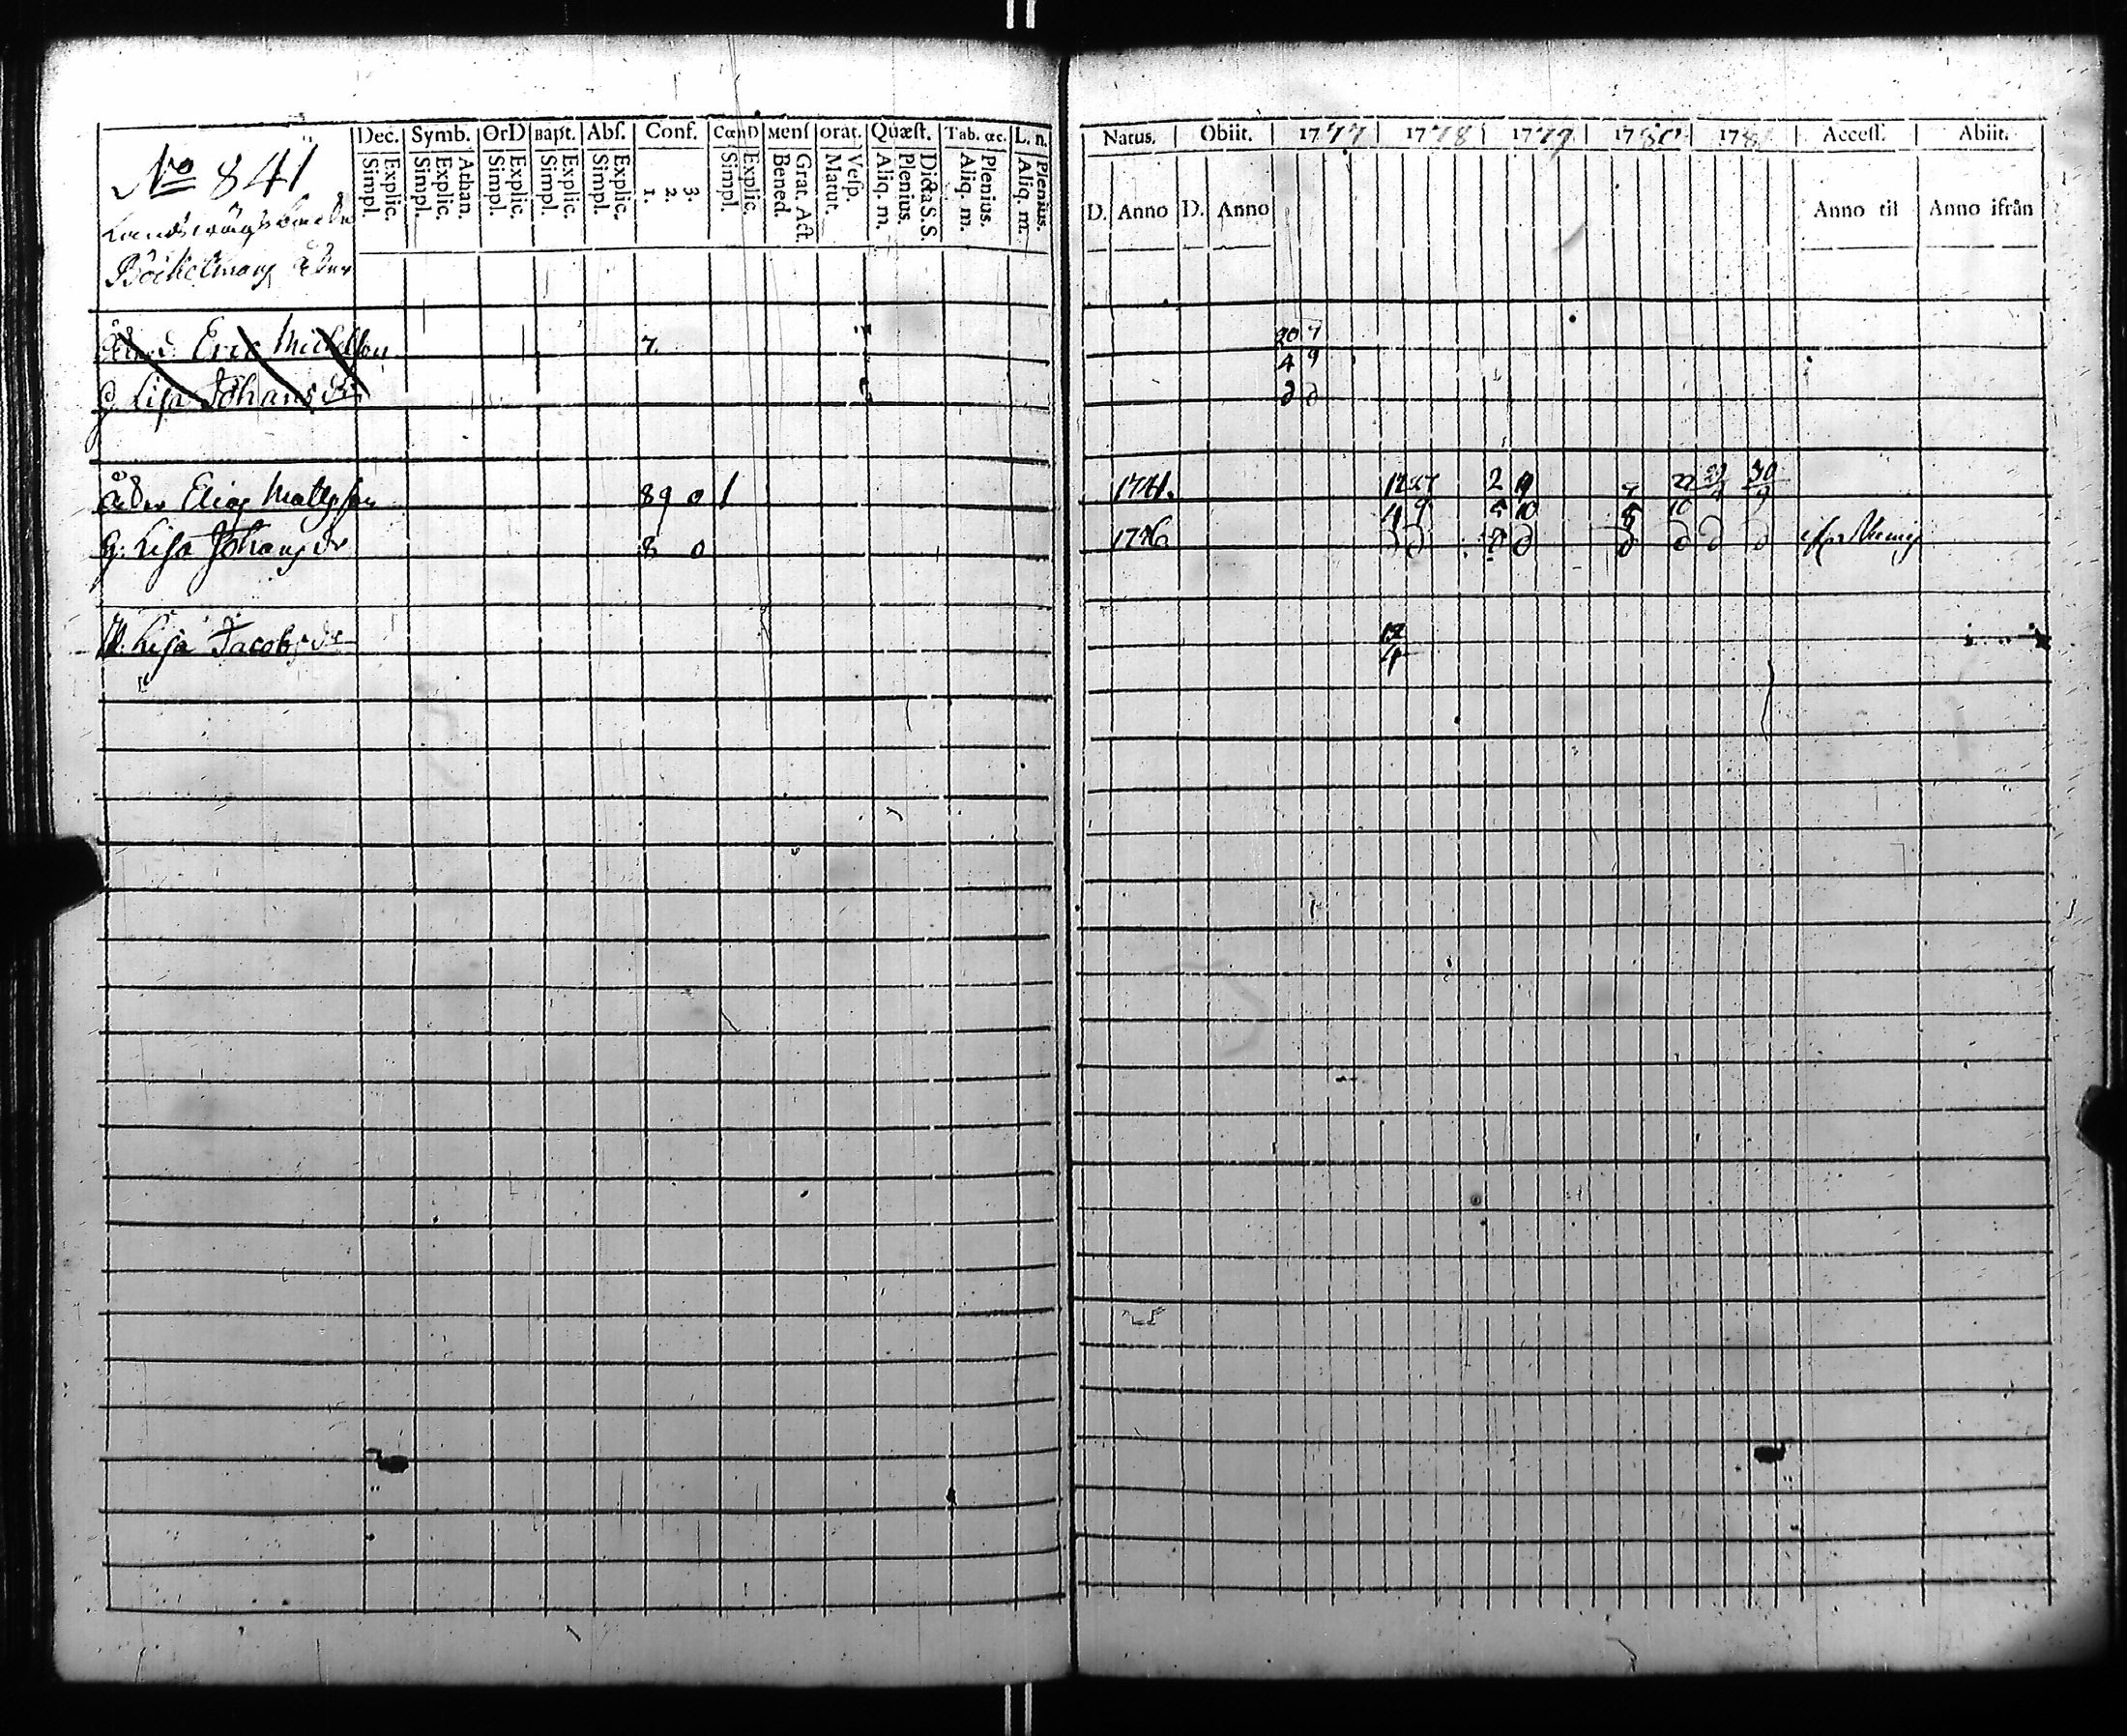 Dec. Symb. OrD Bapſt. Abſ. Conf. CœnD Menſ orat. Quæſt. Tab. œc. L. n.
Simpl. Explic. Simpl. Explic. Athan. Simpl. Explic. Simpl. Explic. Simpl. Explic. 1. 2. 3. Simpl. Explic. Bened. Grat. Act. Matut. Veſp. Aliq. m. Plenius. Dicta S.S. Aliq. m. Plenius. Aliq. m. Plenius.
No 841
Eric Michelſson 7.
g. Liſa Johans dr
Elias Mattsson 8 9 0 1
g. Liſa Johans dr 8 0
Liſa Jacobs dr
Natus. Obiit. 1777 1778 1779 1780 1781 Acceſſ. Abiit.
D. Anno D. Anno Anno til Anno ifrån
20 7
4 9
d d
1741. 12 27 2 9 7 22 22 30
4 9 5 10 8 10 9
1746 d d d d d d d d
12
4